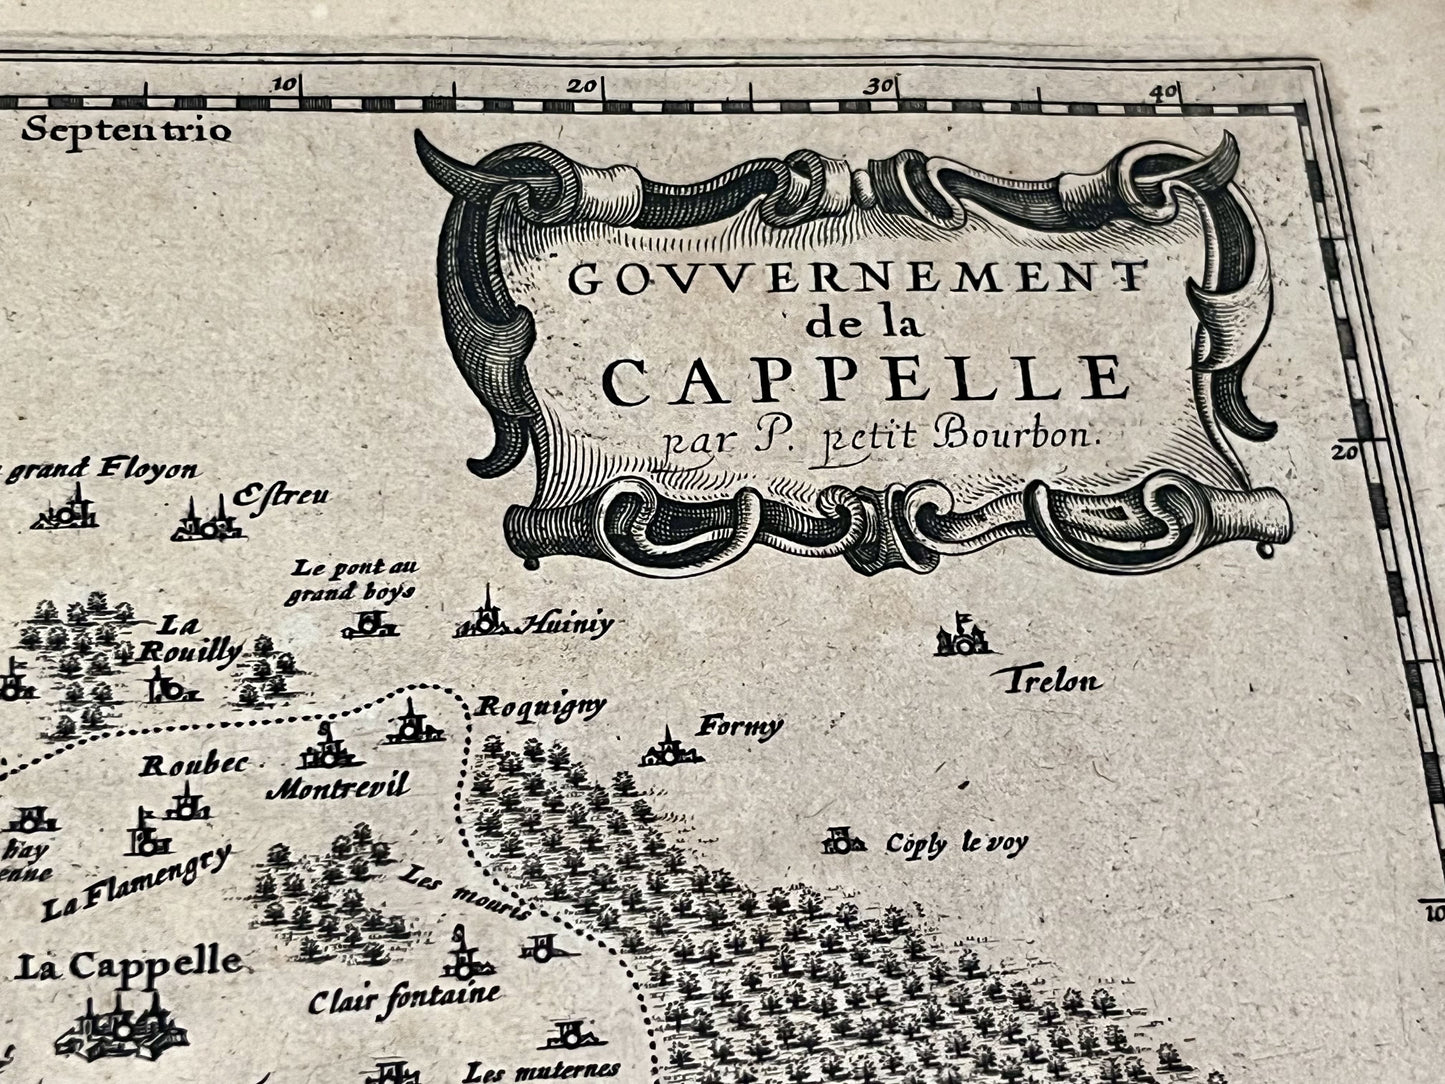 10
20
30
40
Septentrio
GOVVERNEMENT
de la
CAPPELLE
par P. petit Bourbon.
grand Floyon
Eſtreu
20
Le pont au
grand boys
Huiniy
La
Rouilly
Trelon
Roquigny
Formy
Roubec
Montrevil
Coply le voy
hay
enne
La Flamengry
Les mouris
10
La Cappelle
Clair fontaine
Les muternes